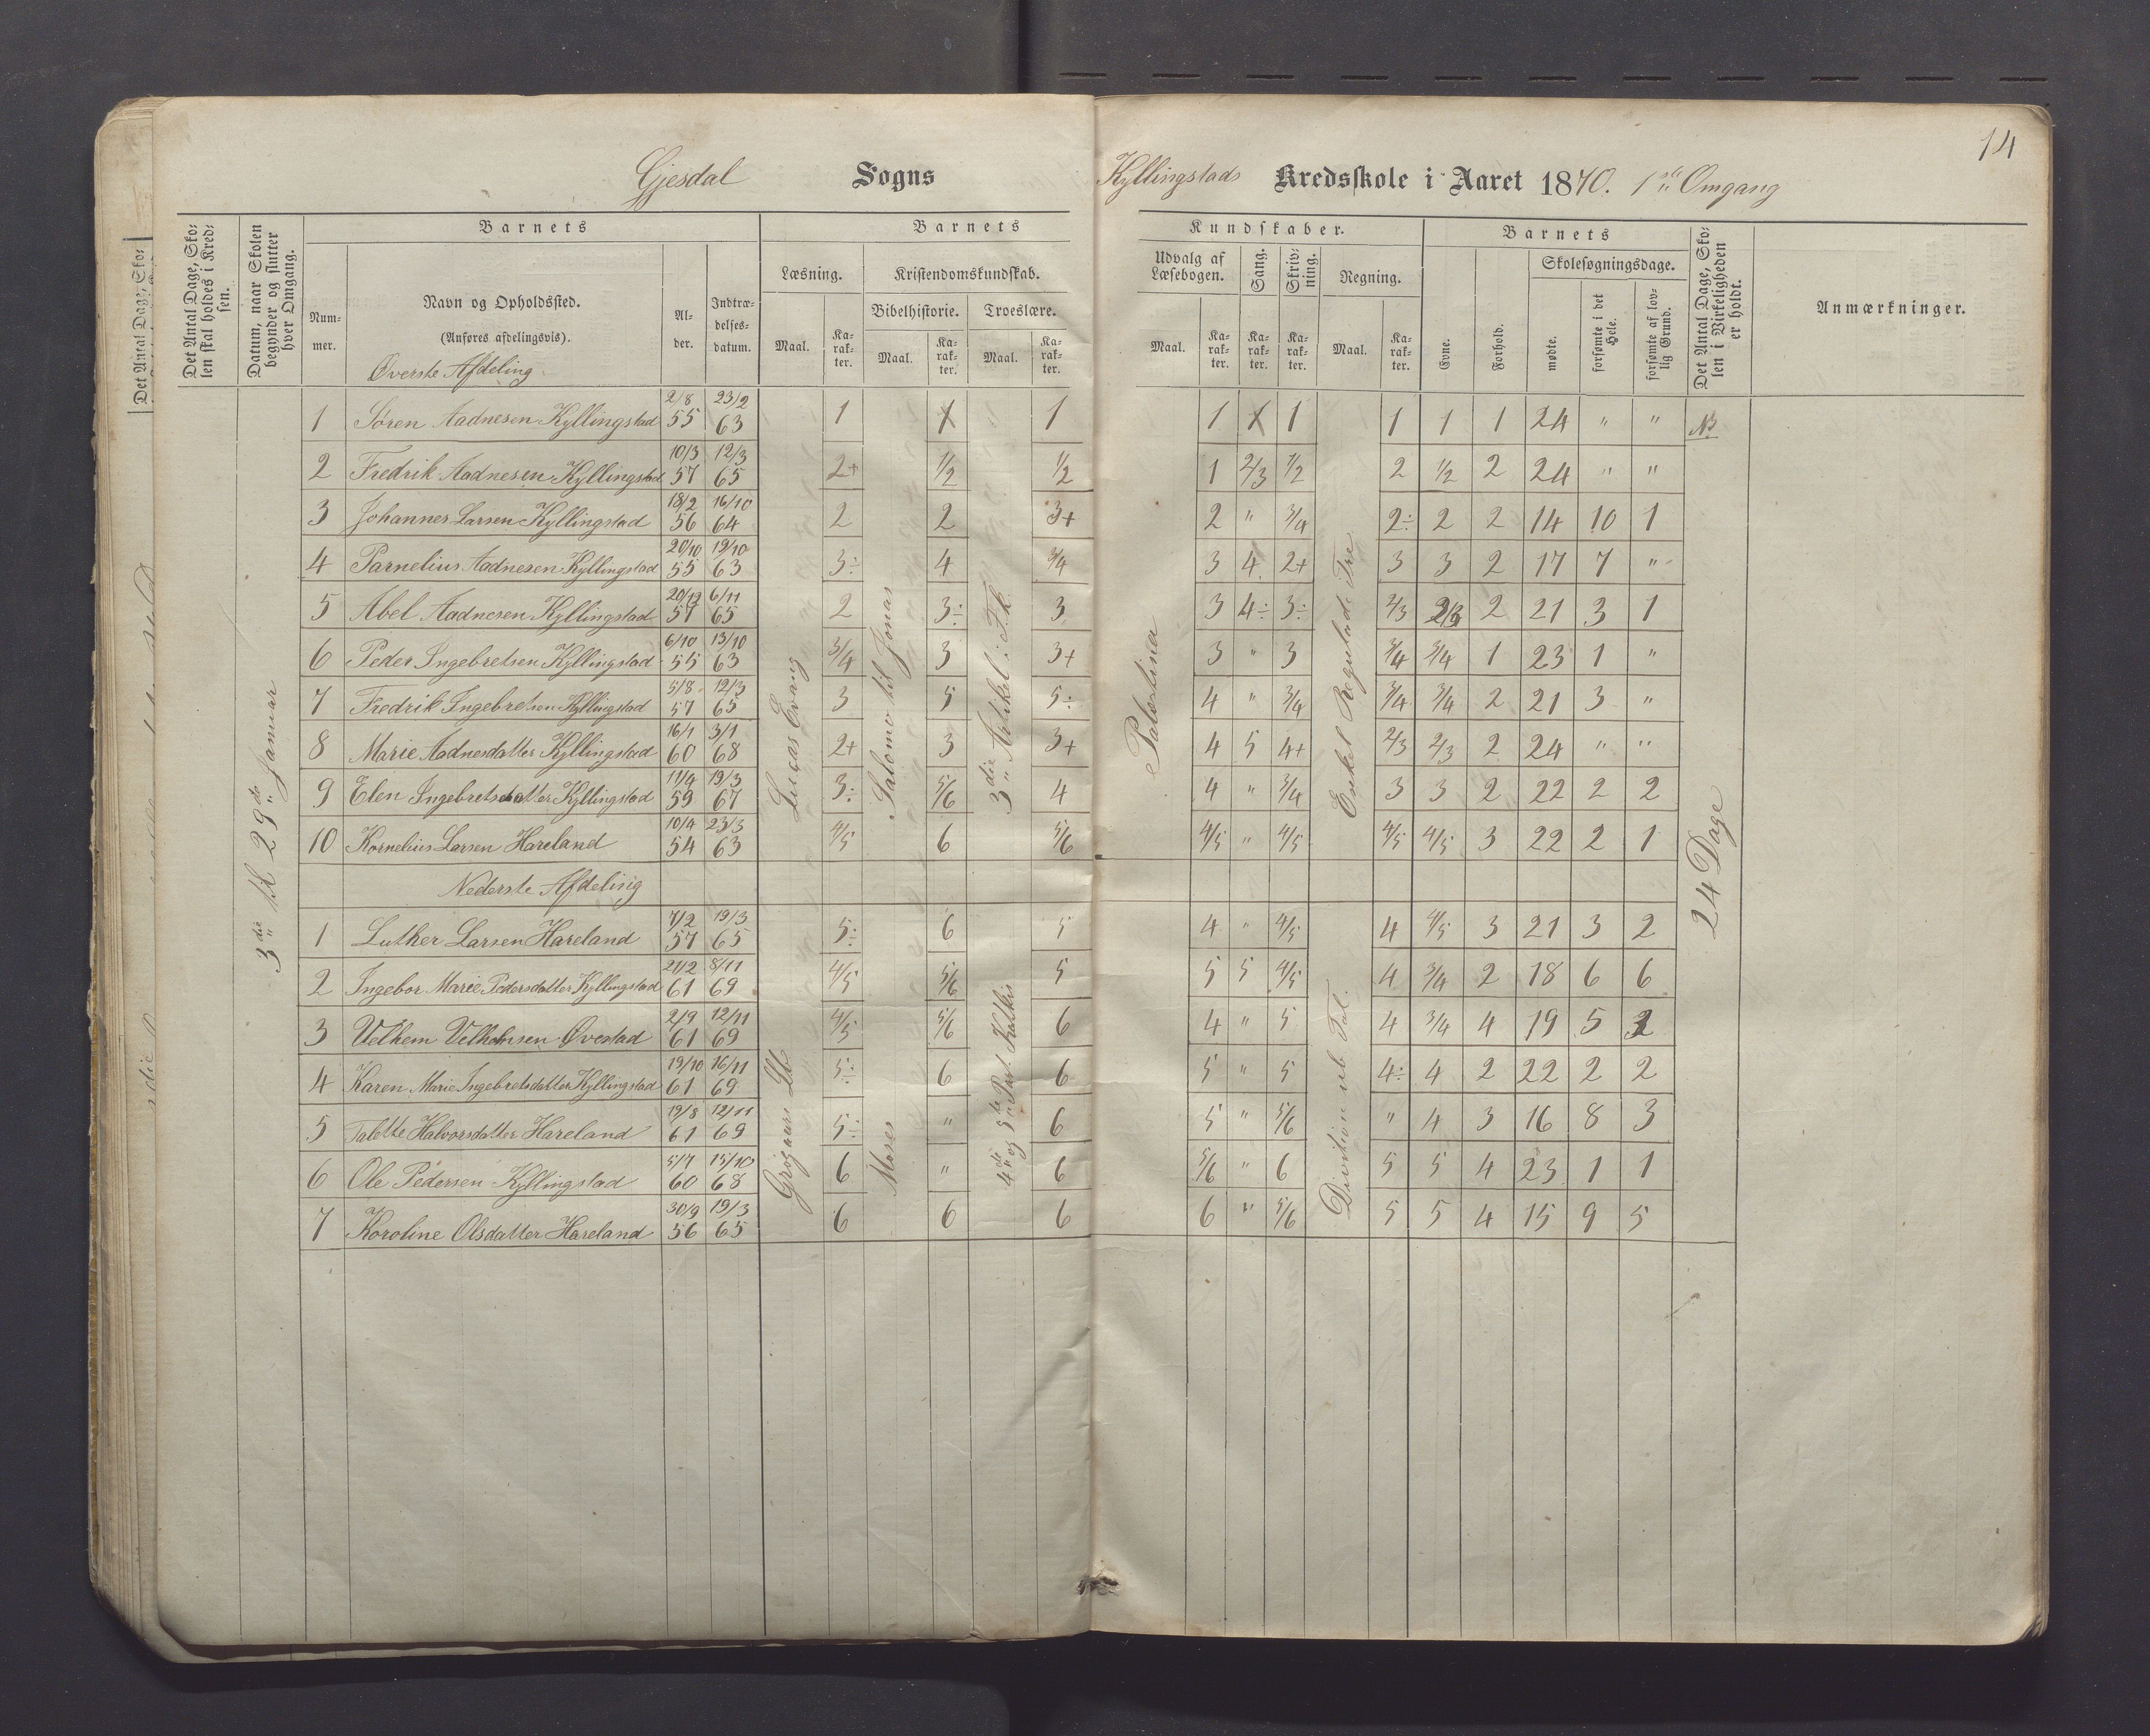 14
Gjesdal Sogns Kyllingstads Kredsskole i Aaret 1870. 1ste Omgang
Det Antal Dage, Skolen skal holdes i Kredsen.
Datum, naar Skolen begynder og slutter hver Omgang.
Barnets
Nummer.
Navn og Opholdssted.
(Anføres afdelingsvis).
Alder.
Indtrædelsesdatum.
Barnets Kundskaber.
Læsning.
Maal.
Karakter.
Kristendomskundskab.
Bibelhistorie.
Maal.
Karakter.
Troeslære.
Maal.
Karakter.
Udvalg af Læsebogen.
Maal.
Karakter.
Sang.
Karakter.
Skrivning.
Karakter.
Regning.
Maal.
Karakter.
Barnets
Evne.
Forhold.
Skolesøgningsdage.
mødte.
forsømte i det Hele.
forsømte af lovlig Grund.
Det Antal Dage, Skolen i Virkeligheden er holdt.
Anmærkninger.
Øverste Afdeling
1 Søren Aadnesen Kyllingstad 2/8 55 23/2 63 1 1 1 1 1 1 1 1 1 24 " "
2 Fredrik Aadnesen Kyllingstad 10/3 57 12/3 65 2+ 1/2 1/2 1 2/3 1/2 2 1/2 2 24 " "
3 Johannes Larsen Kyllingstad 18/2 56 16/10 64 2 2 3+ 2 " 3/4 2÷ 2 2 14 10 1
4 Parnelius Aadnesen Kyllingstad 20/10 55 19/10 63 3÷ 4 3/4 3 4 2+ 3 3 2 17 7 "
5 Abel Aadnesen Kyllingstad 20/12 57 6/11 65 2 3÷ 3 3 4÷ 3÷ 2/3 2/3 2 21 3 1
6 Peder Ingebretsen Kyllingstad 6/10 55 13/10 63 3/4 3 3+ 3 " 3 3/4 3/4 1 23 1 "
7 Fredrik Ingebretsen Kyllingstad 5/8 57 12/3 65 3 5 5÷ 4 " 3/4 3/4 3/4 2 21 3 "
8 Marie Aadnesdatter Kyllingstad 16/1 60 3/1 68 2+ 3 3+ 4 5 4+ 2/3 2/3 2 24 " "
9 Elen Ingebretsdatter Kyllingstad 11/4 59 19/3 67 3÷ 5/6 4 4 " 3/4 3 3 2 22 2 2
10 Kornelius Larsen Hareland 10/4 54 23/3 63 4/5 6 5/6 4/5 " 4/5 4/5 4/5 3 22 2 1
Nederste Afdeling
1 Luther Larsen Hareland 7/2 57 19/3 65 5÷ 6 5 4 " 4/5 4 4/5 3 21 3 2
2 Ingebor Marie Pedersdatter Kyllingstad 21/2 61 8/11 69 4/5 5/6 5 5 5 4/5 4 3/4 2 18 6 6
3 Velhem Velhemsen Øvestad 2/9 61 12/11 69 4/5 5/6 6 4 " 5 4 3/4 4 19 5 2
4 Karen Marie Ingebretsdatter Kyllingstad 19/10 61 16/11 69 5÷ 6 6 5 " 5 4÷ 4 2 22 2 2
5 Talette Halvorsdatter Hareland 19/8 61 12/11 69 5÷ " 6 5 " 5/6 " 4 3 16 8 3
6 Ole Pedersen Kyllingstad 5/7 60 15/10 68 6 " 6 5/6 " 6 5 5 4 23 1 1
7 Karoline Olsdatter Hareland 30/9 56 19/3 65 6 6 6 6 " 5/6 5 5 4 15 9 5
3die til 29de Januar
Lucas Evang
Salomo til Jonas
3die Artikel i F.k.
Palestina
Enkel Regulade Tre
24 Dage
Grøgaars Lb
Moses
4de og 5te Part Katkis
Division ub Tal.